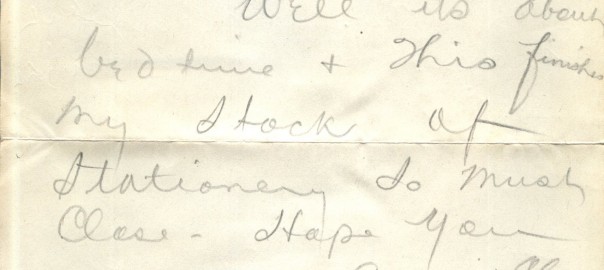 Well its about
bedtime + this finishes
my stock of
Stationery So must
Close - Hope you